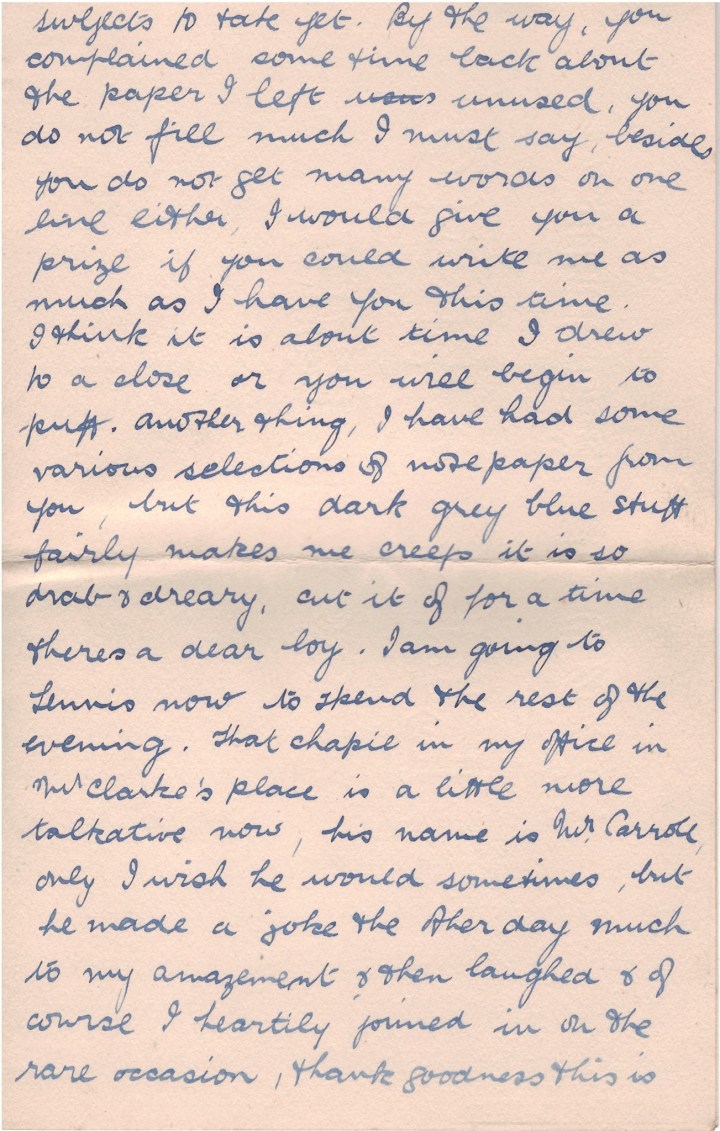 subjects to take yet. By the way, you
complained some time back about
the paper I left unused, you
do not fill much I must say, besides
you do not get many words on one
line either, I would give you a
prize if you could write me as
much as I have you this time.
I think it is about time I drew
to a close or you will begin to
puff. Another thing, I have had some
various selections of notepaper from
you, but this dark grey blue stuff
fairly makes me creep it is so
drab & dreary, cut it of for a time
theres a dear boy. I am going to
Tennis now to spend the rest of the
evening. That chapie in my office in
Mr Clarke's place is a little more
talkative now, his name is Mr. Carroll,
only I wish he would sometimes, but
he made a joke the other day much
to my amazement & then laughed & of
course I heartily joined in on the
rare occasion, thank goodness this is